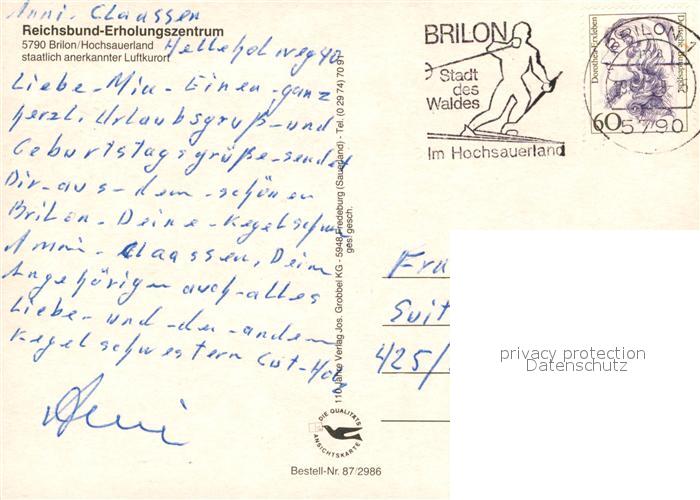 Anni. Claassen
Reichsbund-Erholungszentrum
5790 Brilon/Hochsauerland
staatlich anerkannter Luftkurort
Hellehohlweg 40
Liebe-Mia-Einen-ganz
herzl. Urlaubsgruß-und
Geburtstagsgrüße-sendet
Dir-aus-dem-schönen
Brilon-Deine-Kegelschw
Anni-Claassen, Deinen
Angehörigen auch-alles
Liebe-und-den-andern
Kegelschwestern Gut-Holz
Anni
110 Jahre Verlag Jos. Grobbel KG - 5948 Fredeburg (Sauerland) - Tel. (0 29 74) 70 91
ges. gesch.
DIE QUALITÄTS
ANSICHTSKARTE
Bestell-Nr. 87/2986
BRILON
Stadt
des
Waldes
Im Hochsauerland
Dorothea Erxleben
Deutsche Bundespost
60
BRILON
5790
Fra
Suit
425/
privacy protection
Datenschutz